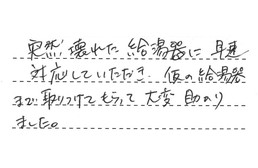 突然壊れた給湯器に早速
対応していただき 仮の給湯器
まで取りつけてもらって大変助かり
ました。